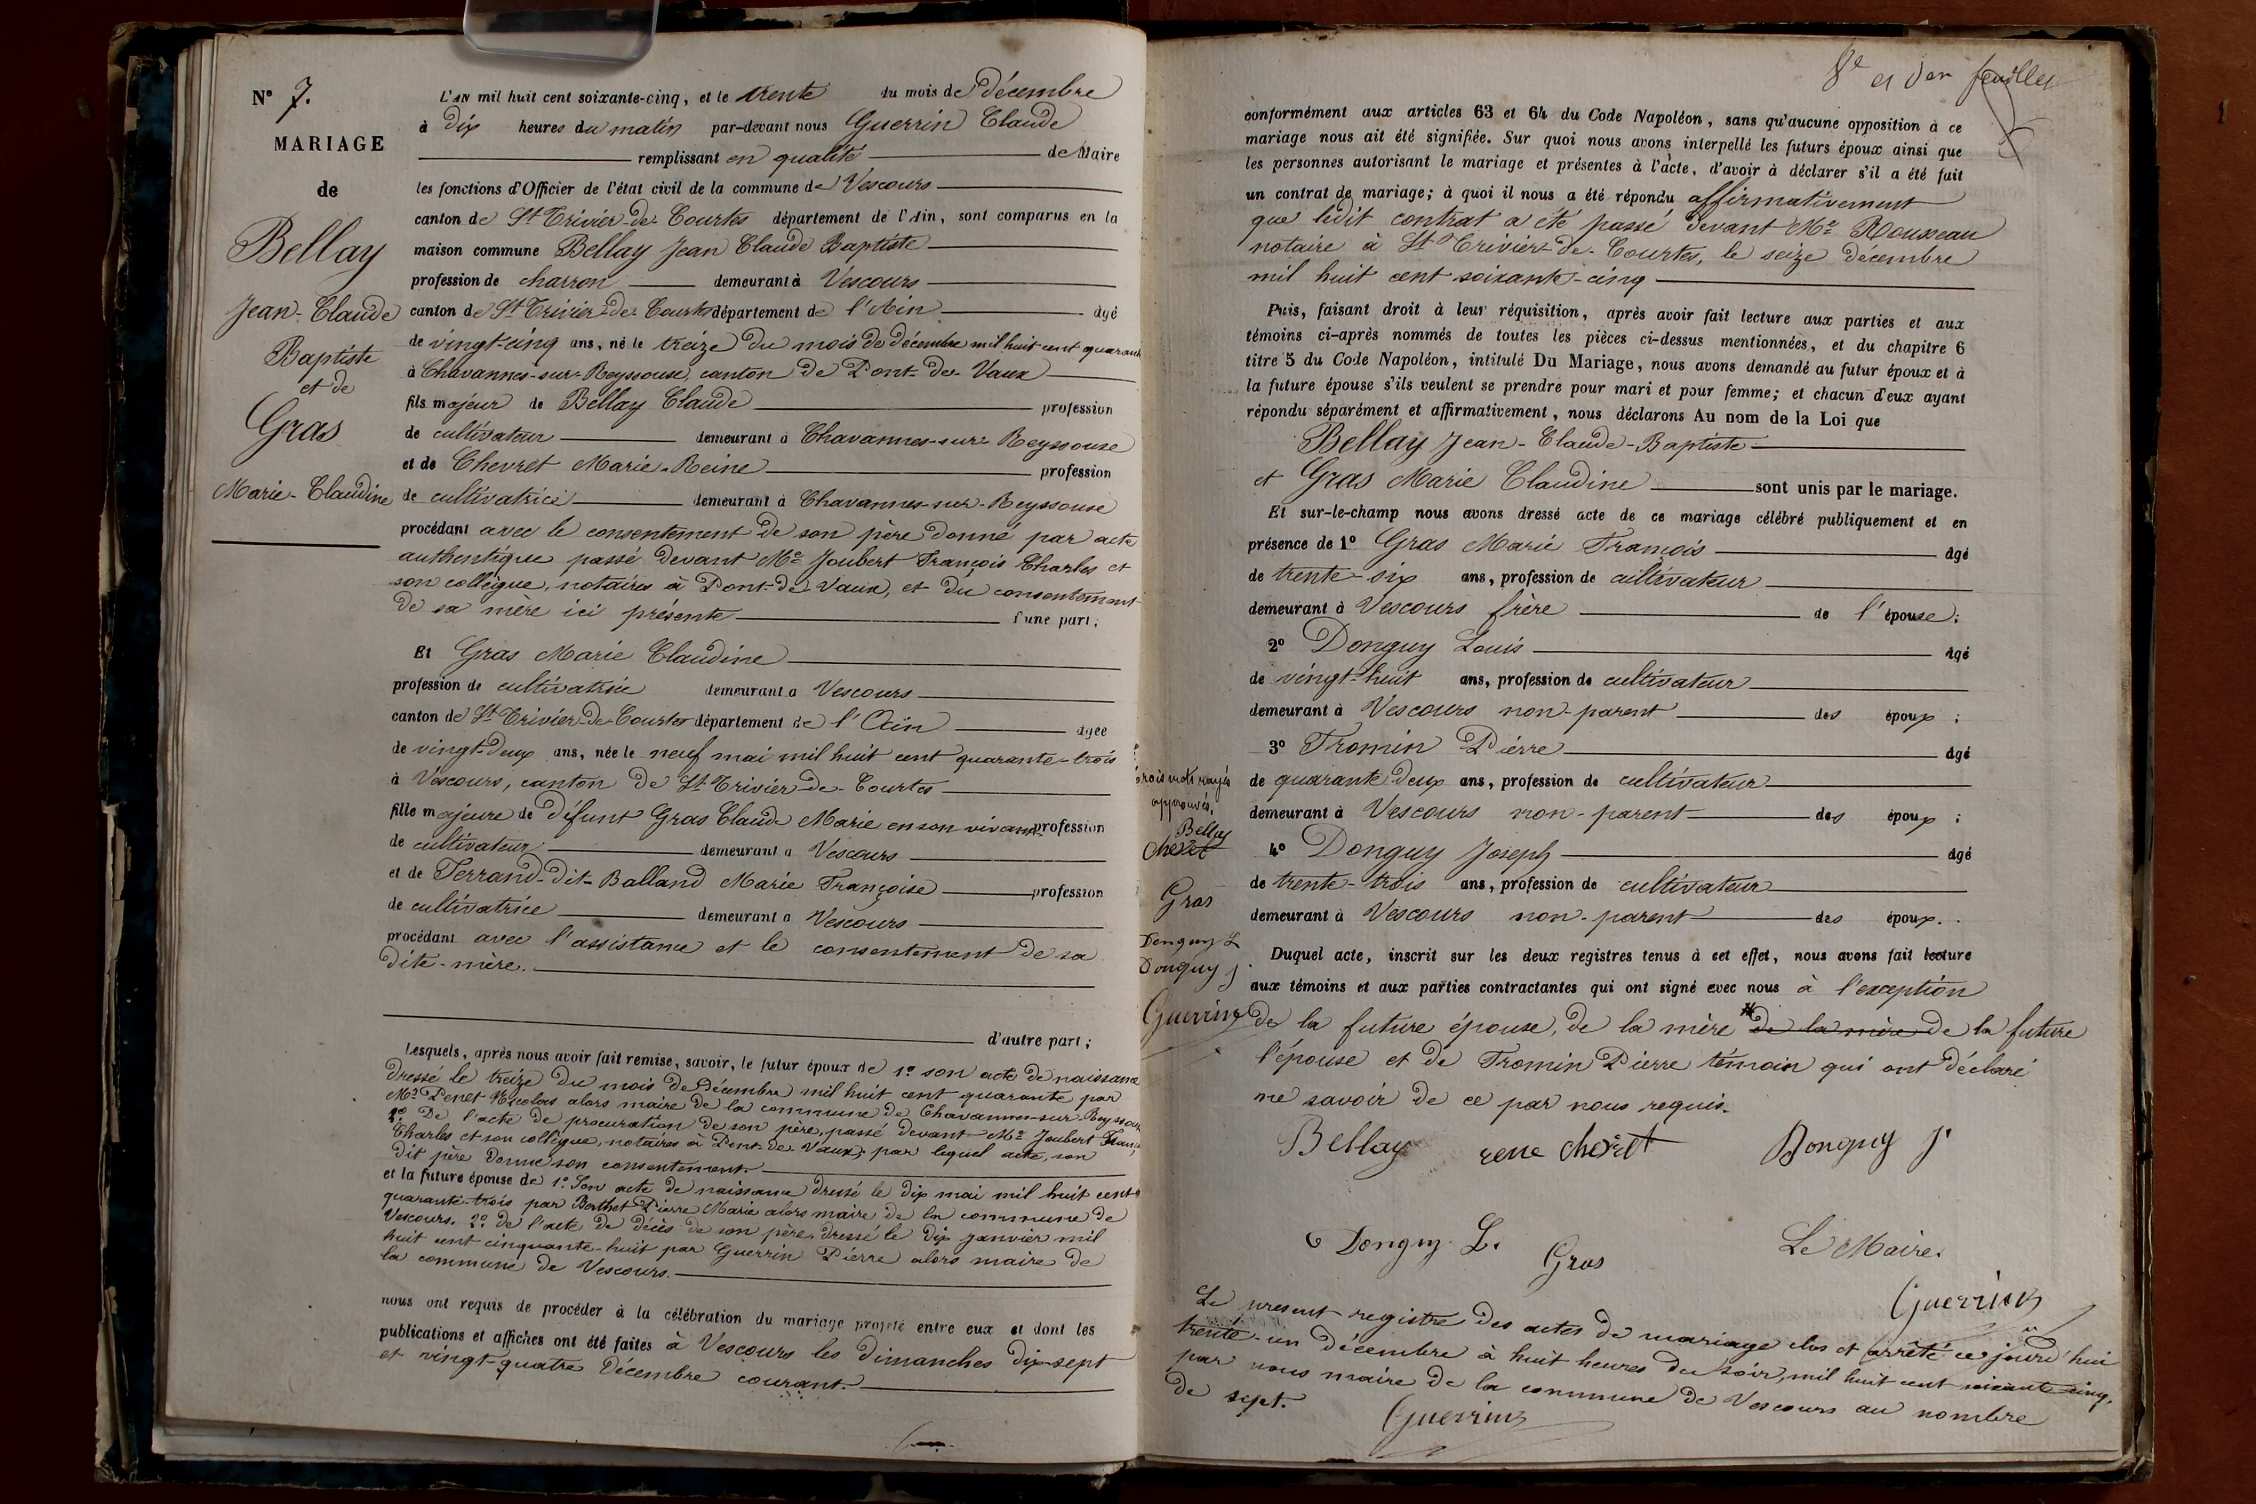 N° 7.
MARIAGE
de
Bellay
Jean-Claude
Baptiste
et de
Gras
Marie-Claudine
L'AN mil huit cent soixante-cinq, et le trente du mois de Décembre
à dix heures du matin par-devant nous Guerrin Claude
remplissant en qualité de Maire
les fonctions d'Officier de l'état civil de la commune de Vescours
canton de St Trivier-de-Courtes département de l'Ain, sont comparus en la
maison commune Bellay Jean Claude Baptiste
profession de charron demeurant à Vescours
canton de St Trivier-de-Courtes département de l'Ain âgé
de vingt-cinq ans, né le treize du mois de décembre mil huit cent quarante
à Chavannes-sur-Reyssouse canton de Pont-de-Vaux
fils majeur de Bellay Claude profession
de cultivateur demeurant à Chavannes-sur-Reyssouse
et de Chevret Marie-Reine profession
de cultivatrice demeurant à Chavannes-sur-Reyssouse
procédant avec le consentement de son père donné par acte
authentique passé devant Me Joubert François Charles et
son collègue, notaires à Pont-de-Vaux, et du consentement
de sa mère ici présente d'une part;
Et Gras Marie Claudine
profession de cultivatrice demeurant à Vescours
canton de St Trivier-de-Courtes département de l'Ain âgée
de vingt-deux ans, née le neuf mai mil huit cent quarante-trois
à Vescours, canton de St Trivier-de-Courtes
fille majeure de défunt Gras Claude Marie en son vivant profession
de cultivateur demeurant à Vescours
et de Ferrand-dit-Balland Marie Françoise profession
de cultivatrice demeurant à Vescours
procédant avec l'assistance et le consentement de sa
dite-mère.
d'autre part;
Lesquels, après nous avoir fait remise, savoir, le futur époux de 1° son acte de naissance
dressé le treize du mois de Décembre mil huit cent quarante par
Mr Penet Nicolas alors maire de la commune de Chavannes-sur-Reyssouse
2° De l'acte de procuration de son père, passé devant Me Joubert François
Charles et son collègue, notaires à Pont-de-Vaux, par lequel acte, son
dit père donne son consentement.
et la future épouse de 1° Son acte de naissance dressé le dix mai mil huit cent
quarante-trois par Berthet Pierre Marie alors maire de la commune de
Vescours. 2° de l'acte de décès de son père dressé le dix janvier mil
huit cent cinquante-huit par Guerrin Pierre alors maire de
la commune de Vescours.
nous ont requis de procéder à la célébration du mariage projeté entre eux et dont les
publications et affiches ont été faites à Vescours les dimanches dix-sept
et vingt-quatre Décembre courant.
8e et der feuillet
conformément aux articles 63 et 64 du Code Napoléon, sans qu'aucune opposition à ce
mariage nous ait été signifiée. Sur quoi nous avons interpellé les futurs époux ainsi que
les personnes autorisant le mariage et présentes à l'acte, d'avoir à déclarer s'il a été fait
un contrat de mariage; à quoi il nous a été répondu affirmativement
que ledit contrat a été passé devant Me Rouxeau
notaire à St Trivier-de-Courtes, le seize décembre
mil huit cent soixante-cinq
Puis, faisant droit à leur réquisition, après avoir fait lecture aux parties et aux
témoins ci-après nommés de toutes les pièces ci-dessus mentionnées, et du chapitre 6
titre 5 du Code Napoléon, intitulé Du Mariage, nous avons demandé au futur époux et à
la future épouse s'ils veulent se prendre pour mari et pour femme; et chacun d'eux ayant
répondu séparément et affirmativement, nous déclarons Au nom de la Loi que
Bellay Jean-Claude-Baptiste
et Gras Marie Claudine sont unis par le mariage.
Et sur-le-champ nous avons dressé acte de ce mariage célébré publiquement et en
présence de 1° Gras Marie François âgé
de trente-six ans, profession de cultivateur
demeurant à Vescours frère de l'épouse;
2° Donguy Louis âgé
de vingt-huit ans, profession de cultivateur
demeurant à Vescours non-parent des époux;
3° Fromin Pierre âgé
de quarante-deux ans, profession de cultivateur
demeurant à Vescours non-parent des époux;
4° Donguy Joseph âgé
de trente-trois ans, profession de cultivateur
demeurant à Vescours non-parent des époux.
Duquel acte, inscrit sur les deux registres tenus à cet effet, nous avons fait lecture
aux témoins et aux parties contractantes qui ont signé avec nous à l'exception
de la future épouse, de la mère de la mère de la future
l'épouse et de Fromin Pierre témoin qui ont déclaré
ne savoir de ce par nous requis.
trois mots rayés
approuvés.
Bellay
Chevret
Gras
Donguy L
Donguy J.
Guerrin
Bellay rene chevret Donguy J.
Donguy L. Gras Le Maire.
Guerrin
Le present registre des actes de mariage clos et arrêté ce jourd'hui
trente-un décembre à huit heures du soir, mil huit cent soixante-cinq,
par nous maire de la commune de Vescours au nombre
de sept.
Guerrin